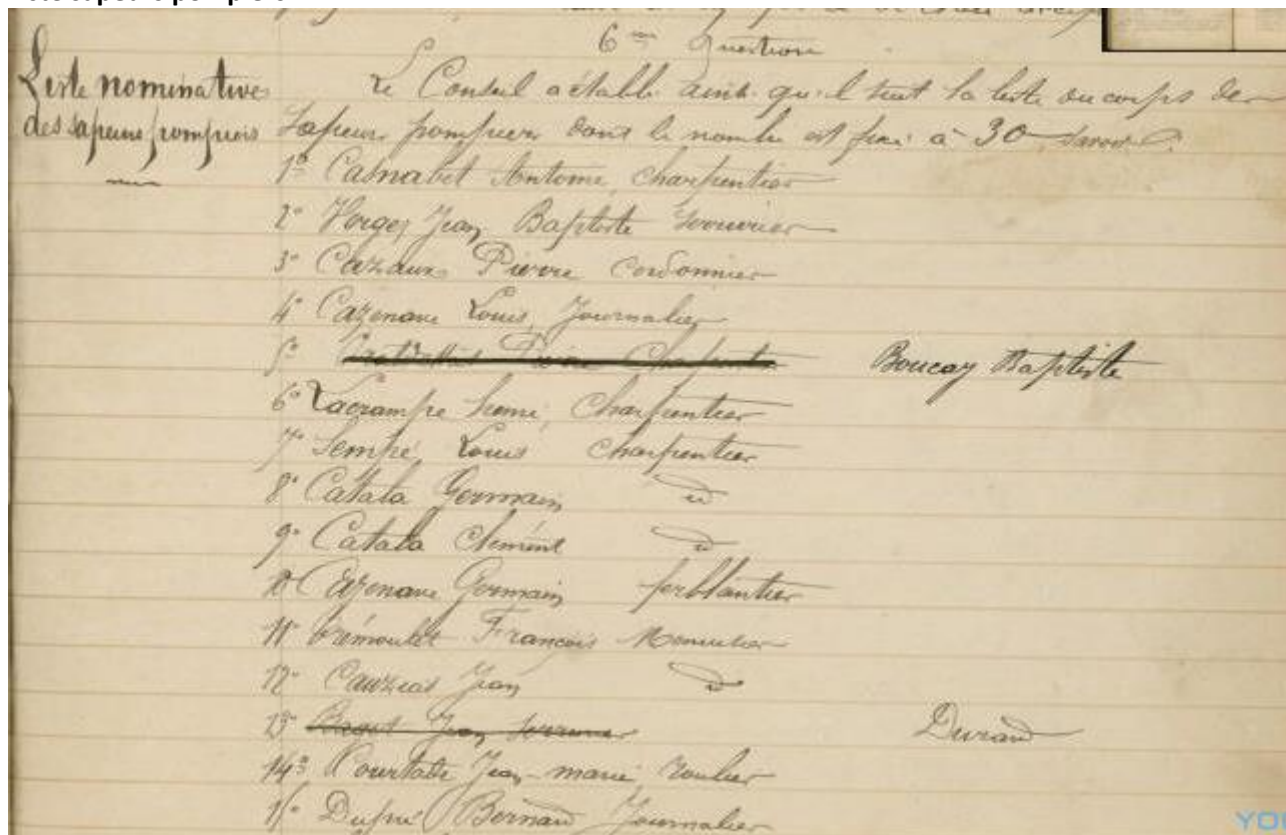 6me Question
Liste nominative
des sapeurs pompiers
Le Conseil a établi ainsi qu'il suit la liste du corps des
Sapeurs pompiers dont le nombre est fixé à 30 Savoir
1o Casnabet Antoine, Charpentier
2o Verges Jean Baptiste
3o Cazaux Pierre Cordonnier
4o Cazenave Louis, Journalier
5o Pierre Charpentier Boucay Baptiste
6o Lacrampe Charpentier
7o Sempé Louis Charpentier
8o Catala Germain d
9o Catala Clément d
10 Cazenave Germain ferblantier
11o Trémoulet François Menuisier
12o Cauzeas Jean d
13o Jean Serrurier Durand
14o Courtade Jean-marie, roulier
15o Dupui Bernard Journalier
YOU